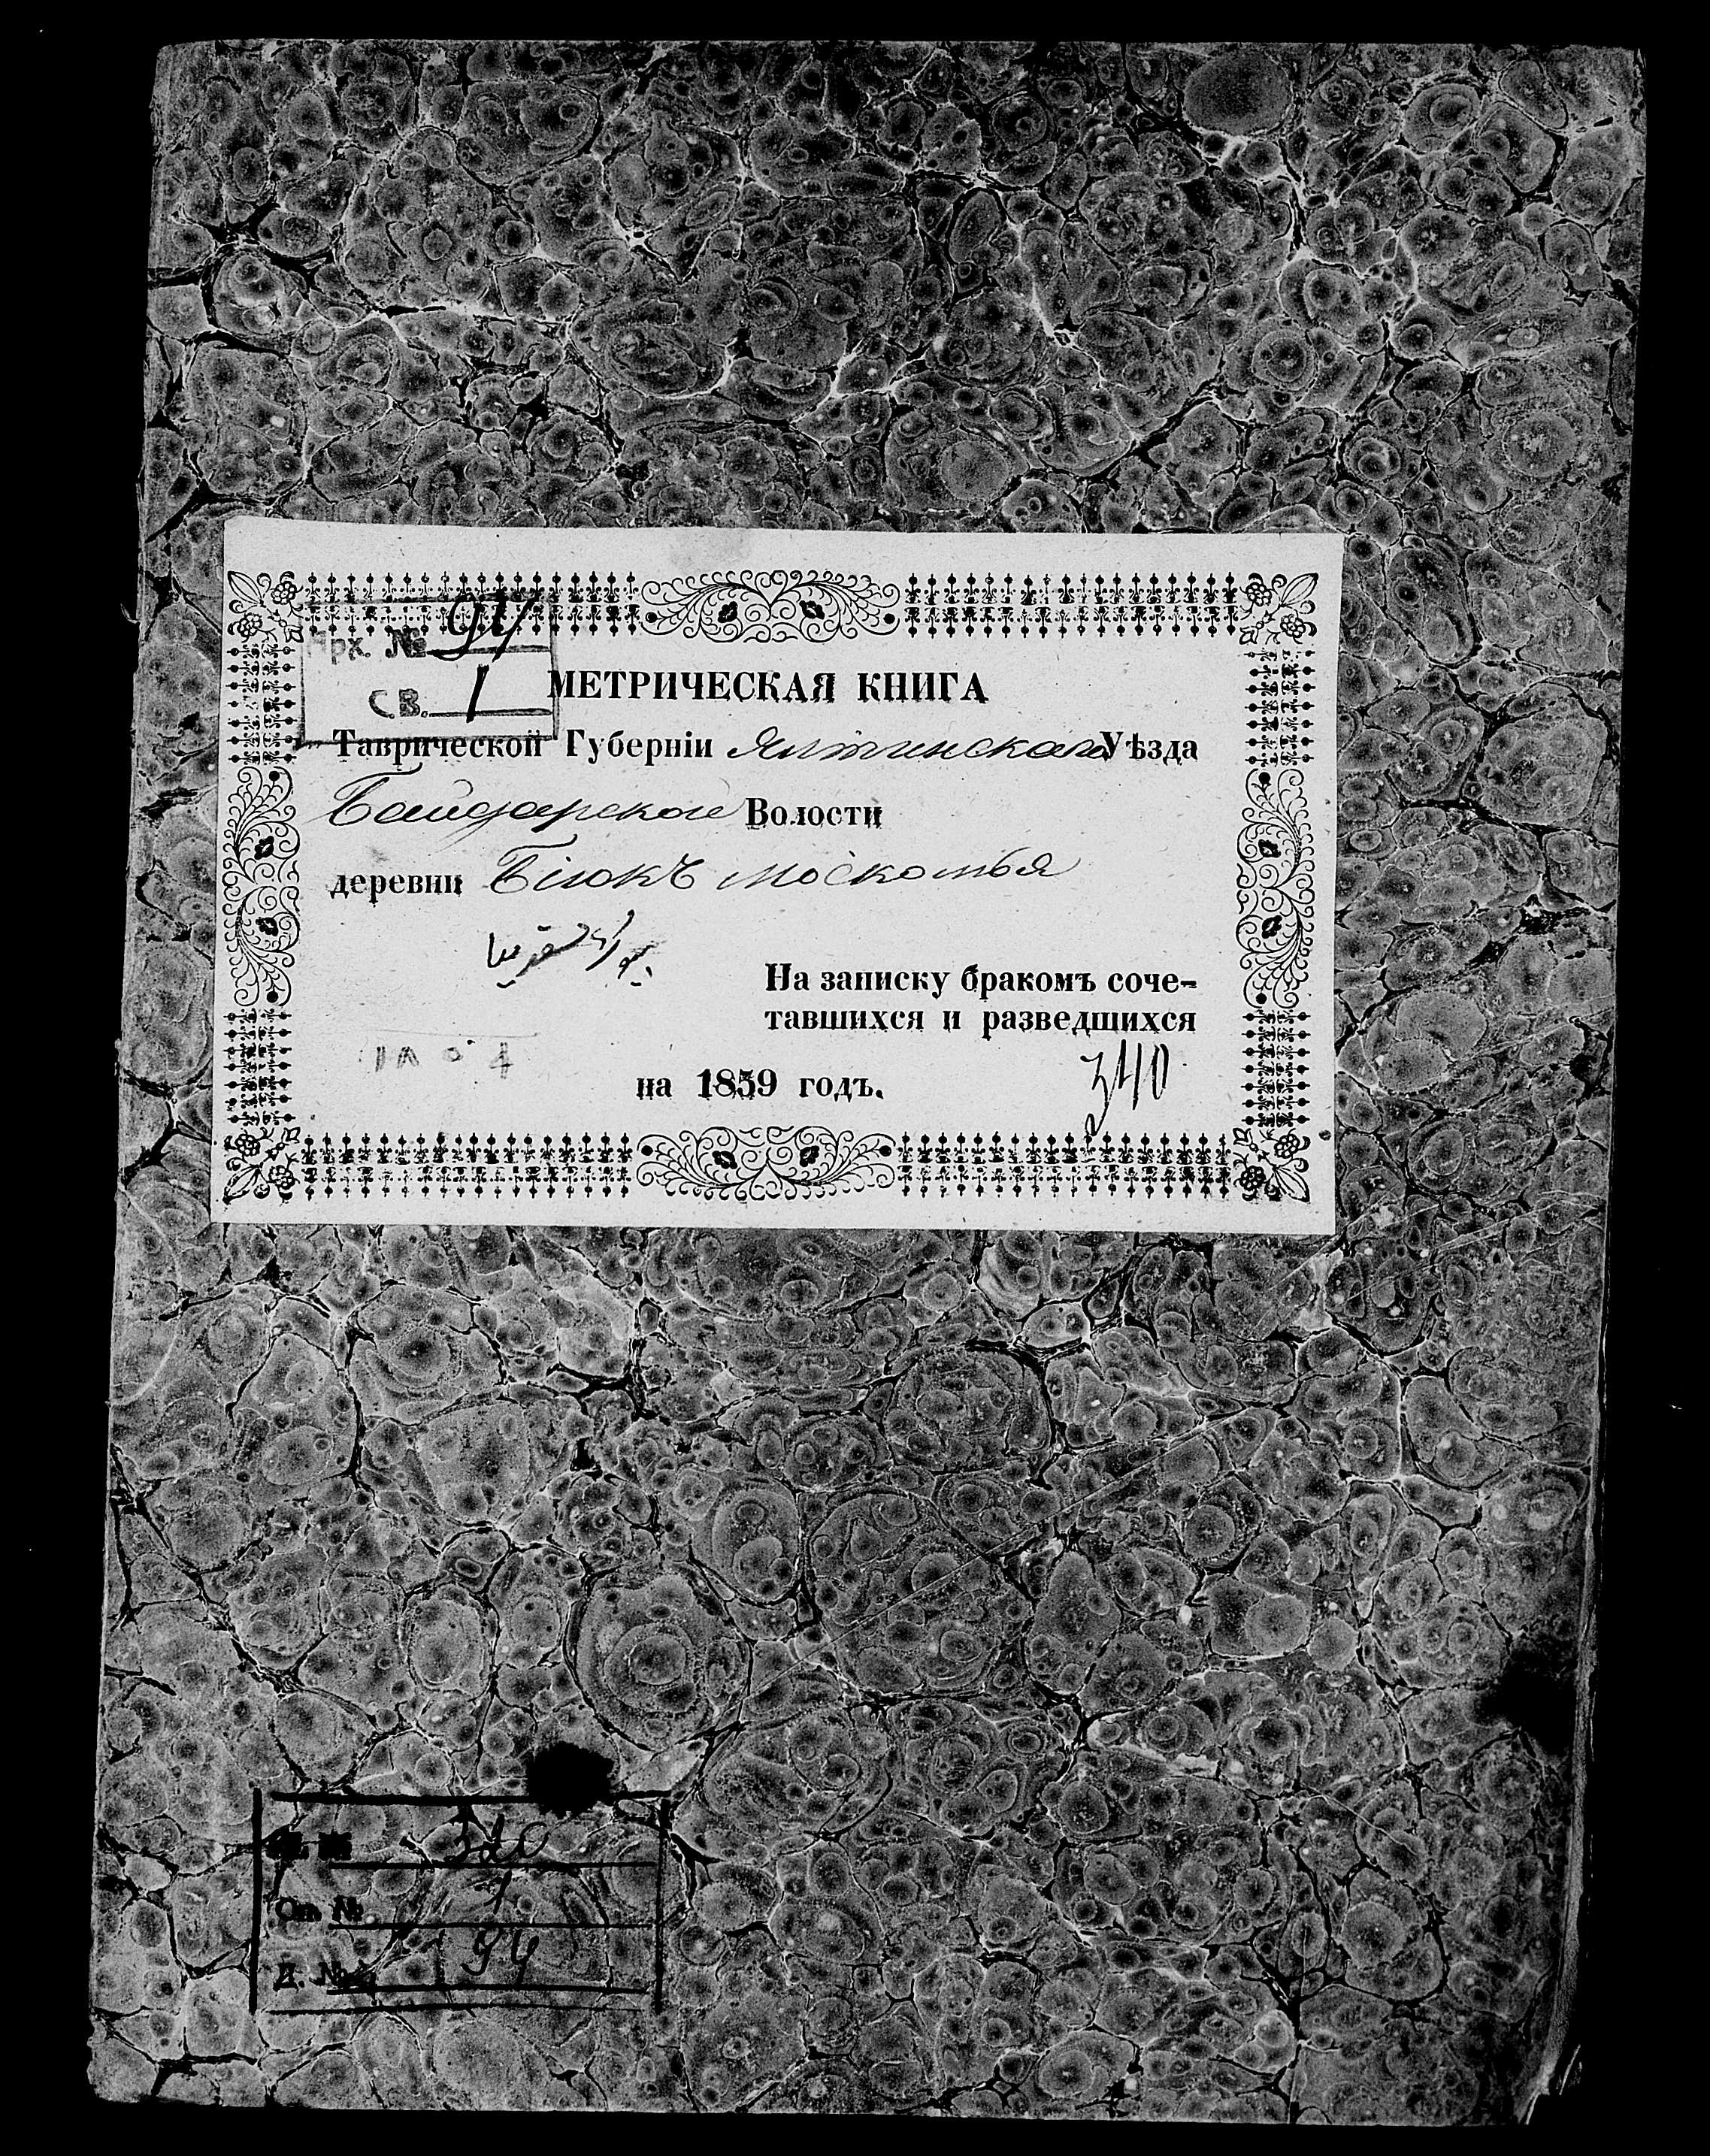 Арх. № 94
св. 1
МЕТРИЧЕСКАЯ КНИГА
Таврической Губерніи Ялтинскаго Уѣзда
Байдарской Волости
деревни Біюкъ москомья
На записку бракомъ соче-
тавшихся и разведшихся
340
на 1859 годъ.
320
Оп. № 1
Д. № 94